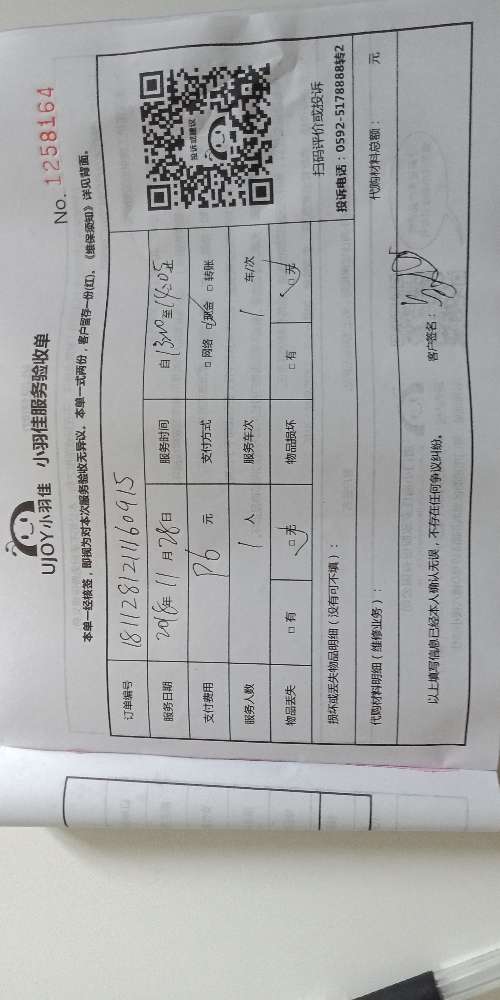 UJOY小羽佳 小羽佳服务验收单
No. 1258164
本单一经核签，即视为对本次服务验收无异议。本单一式两份，客户留存一份(红)。《维保须知》详见背面。
订单编号 181128121160915
服务日期 2018年 11月 28日 服务时间 自 13:00 至 14:05止
支付费用 元 支付方式 □ 网络 □ 现金 □ 转账
服务人数 1 人 服务车次 1 车/次
物品丢失 □ 有 □ 无 物品损坏 □ 有 □ 无
投诉或建议
扫码评价或投诉
投诉电话：0592-5178888转2
损坏或丢失物品明细（没有可不填）：
代购材料明细（维修业务）： 代购材料总额： 元
以上填写信息已经本人确认无误，不存在任何争议纠纷。 客户签名：